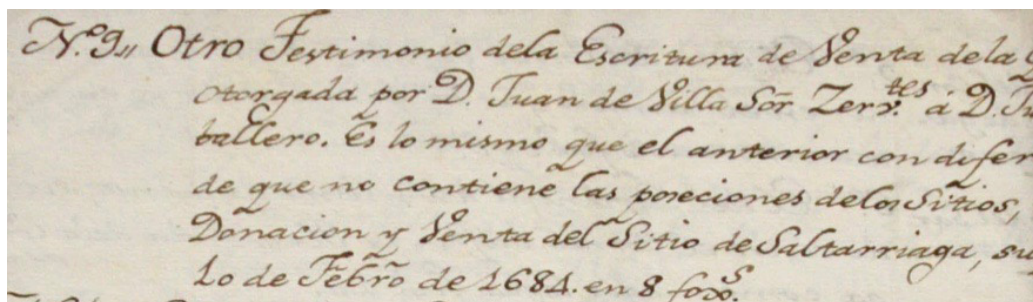 N.º 9,, Otro Testimonio dela Escritura de Venta dela
otorgada por D. Juan de Villa Sōr Zerv.tes á D. Ju
ballero. Es lo mismo que el anterior con difer
de que no contiene las poseciones delos Sitios,
Donacion y Venta del Sitio de Saltarriaga, su
10 de Febrō de 1684. en 8 fox.s